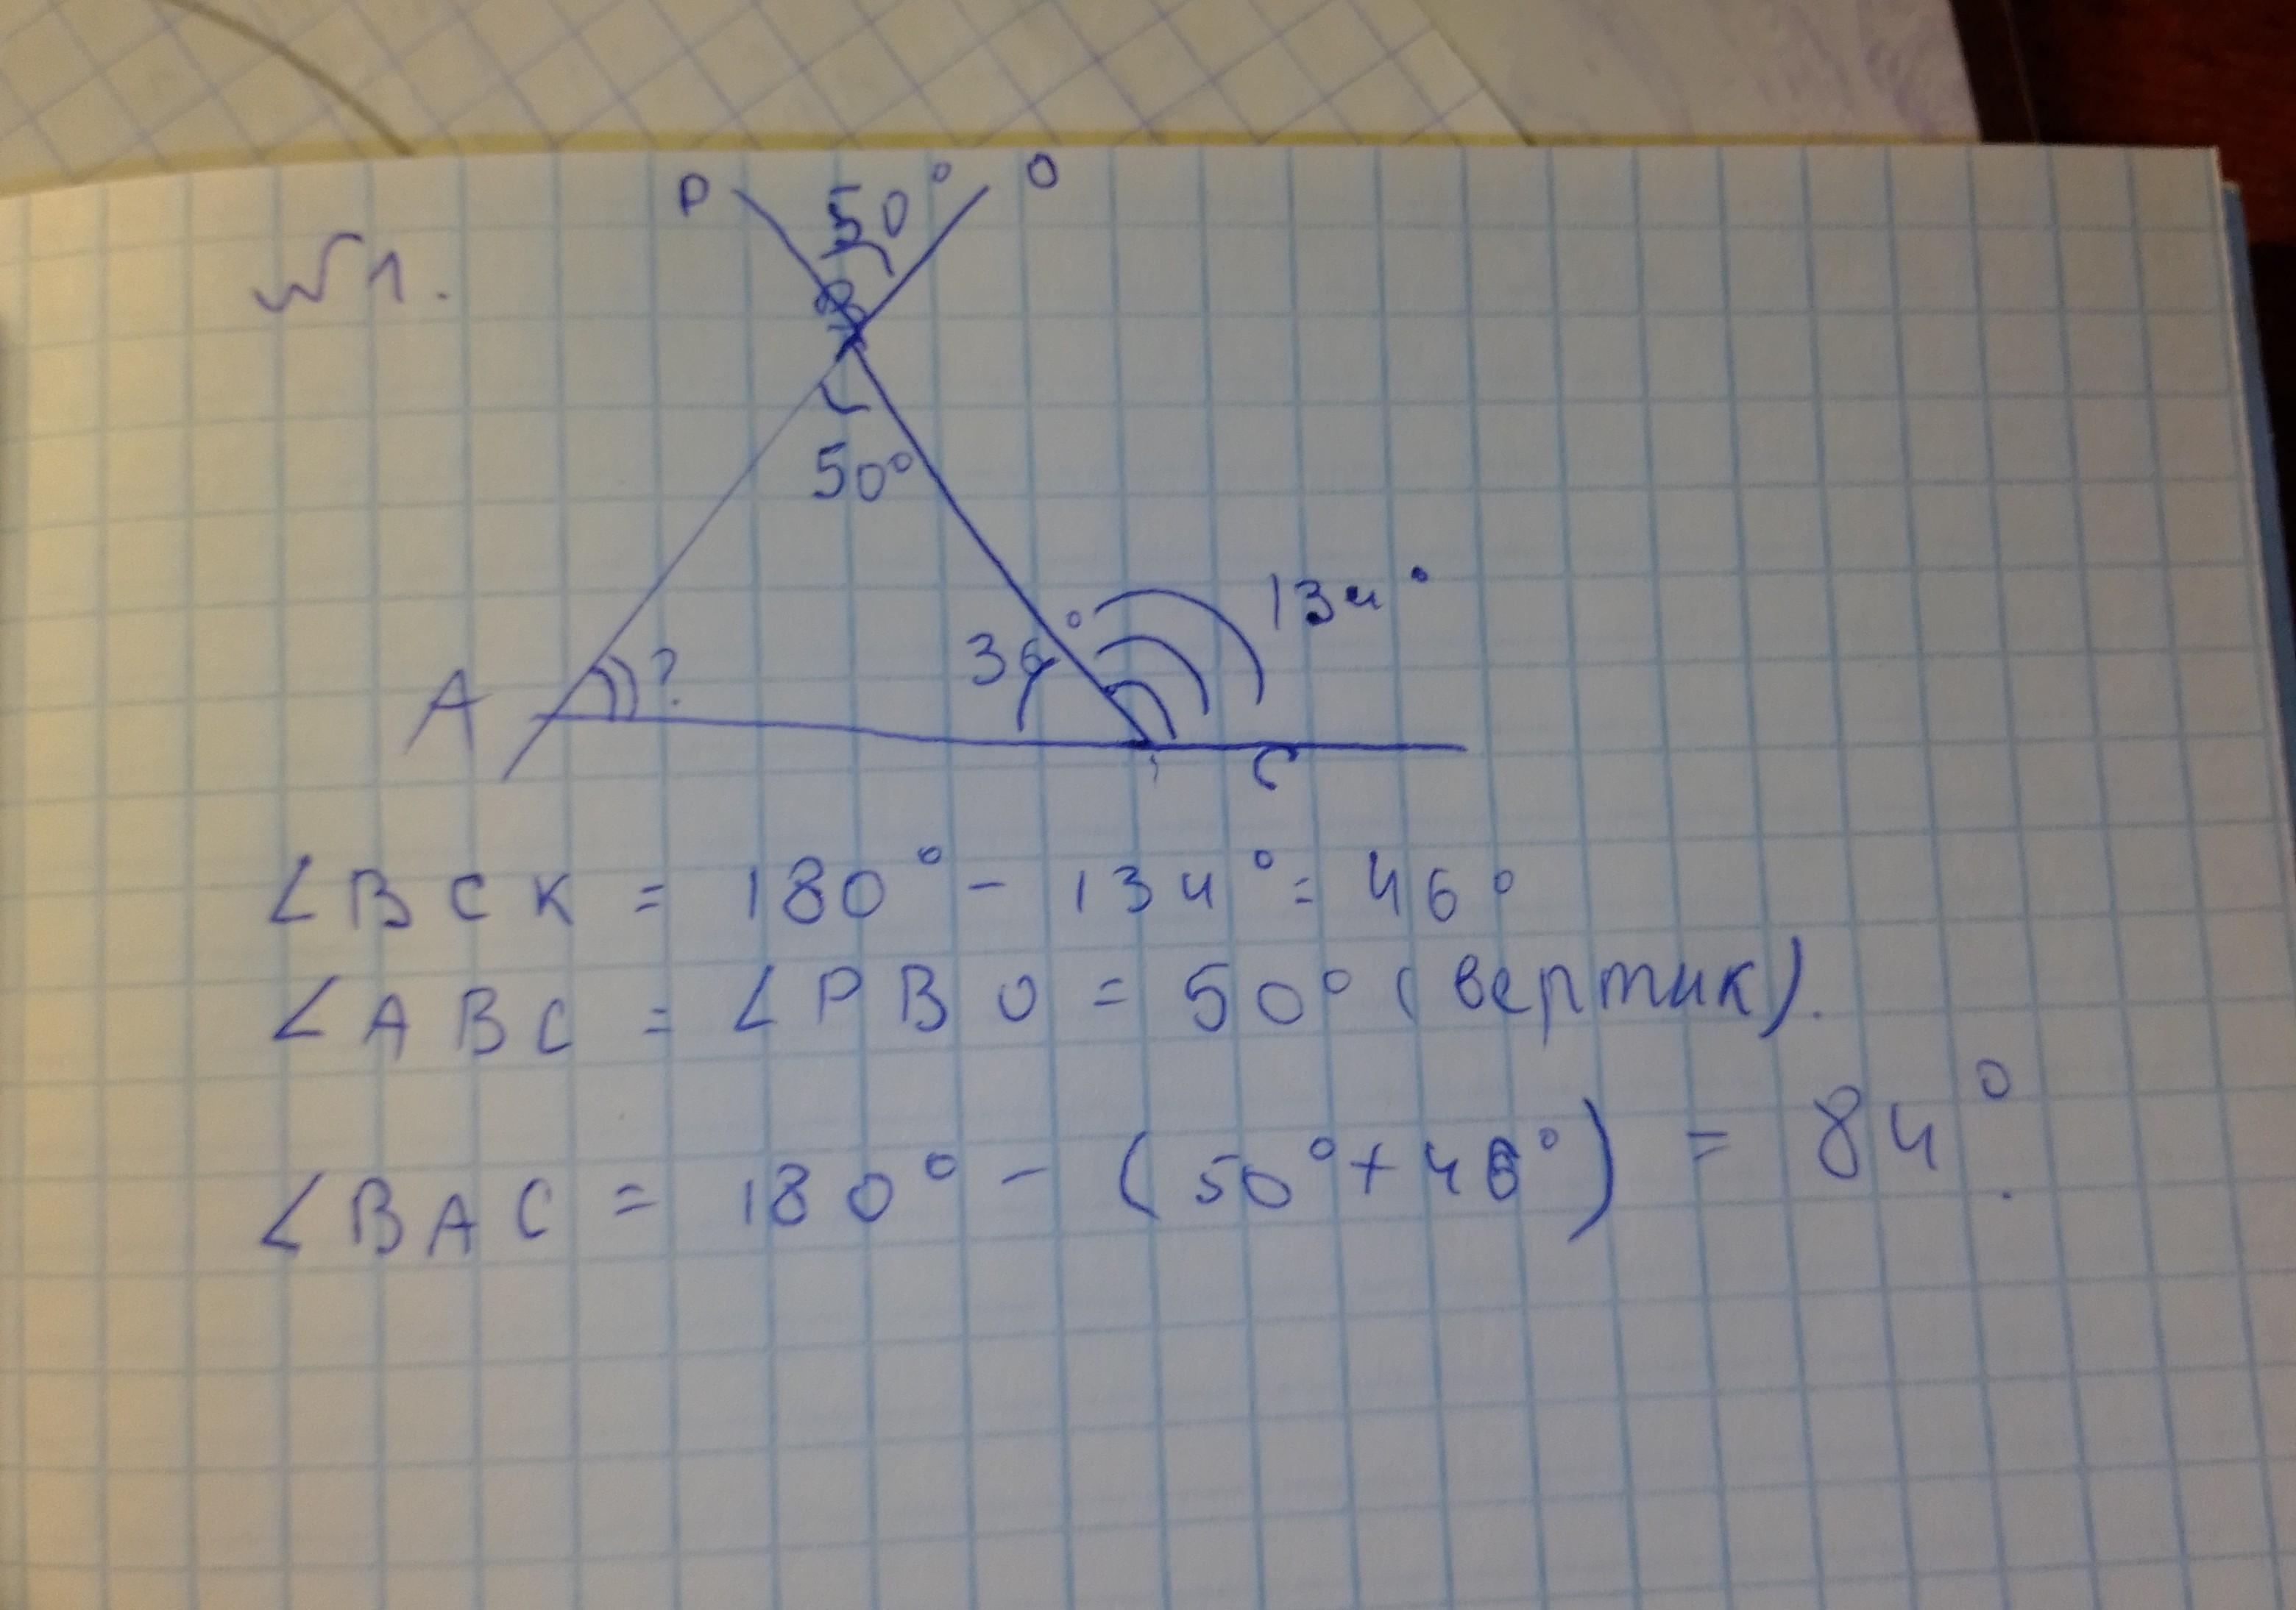 №1.
P 50° O
B
50°
134°
36°
A ?
C
∠BCK = 180° - 134° = 46°
∠ABC = ∠PBO = 50° (вертик).
∠BAC = 180° - (50° + 46°) = 84°.